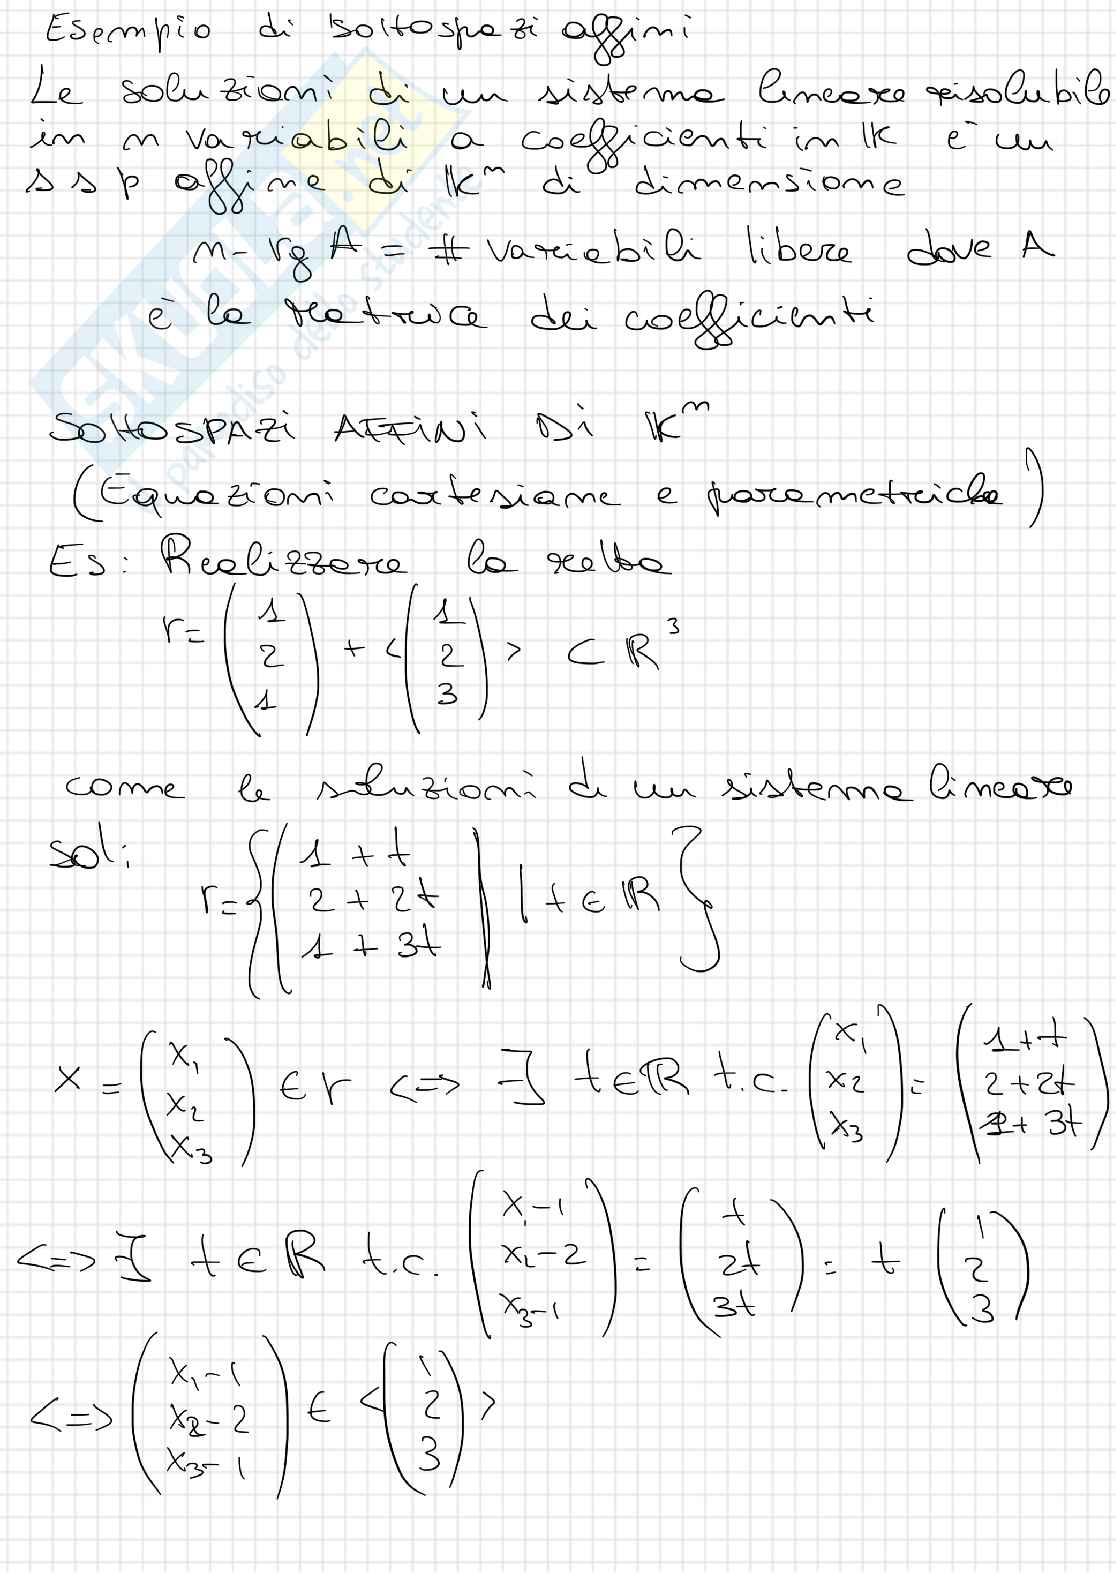 Esempio di sottospazi affini
Le soluzioni di un sistema lineare risolubile
in n variabili a coefficienti in K è un
ssp affine di Kⁿ di dimensione
n - rg A = # variabili libere dove A
è la matrice dei coefficienti
SOTTOSPAZI AFFINI Di Kⁿ
(Equazioni cartesiane e parametriche)
Es: Realizzare la retta
r = (1 2 1) + <(1 2 3)> ⊂ R³
come le soluzioni di un sistema lineare
sol:
r = {(1 + t 2 + 2t 1 + 3t) | t ∈ R}
x = (x₁ x₂ x₃) ∈ r <=> ∃ t ∈ R t.c. (x₁ x₂ x₃) = (1 + t 2 + 2t 1 + 3t)
<=> ∃ t ∈ R t.c. (x₁ - 1 x₂ - 2 x₃ - 1) = (t 2t 3t) = t (1 2 3)
<=> (x₁ - 1 x₂ - 2 x₃ - 1) ∈ <(1 2 3)>
SKUOLA.net